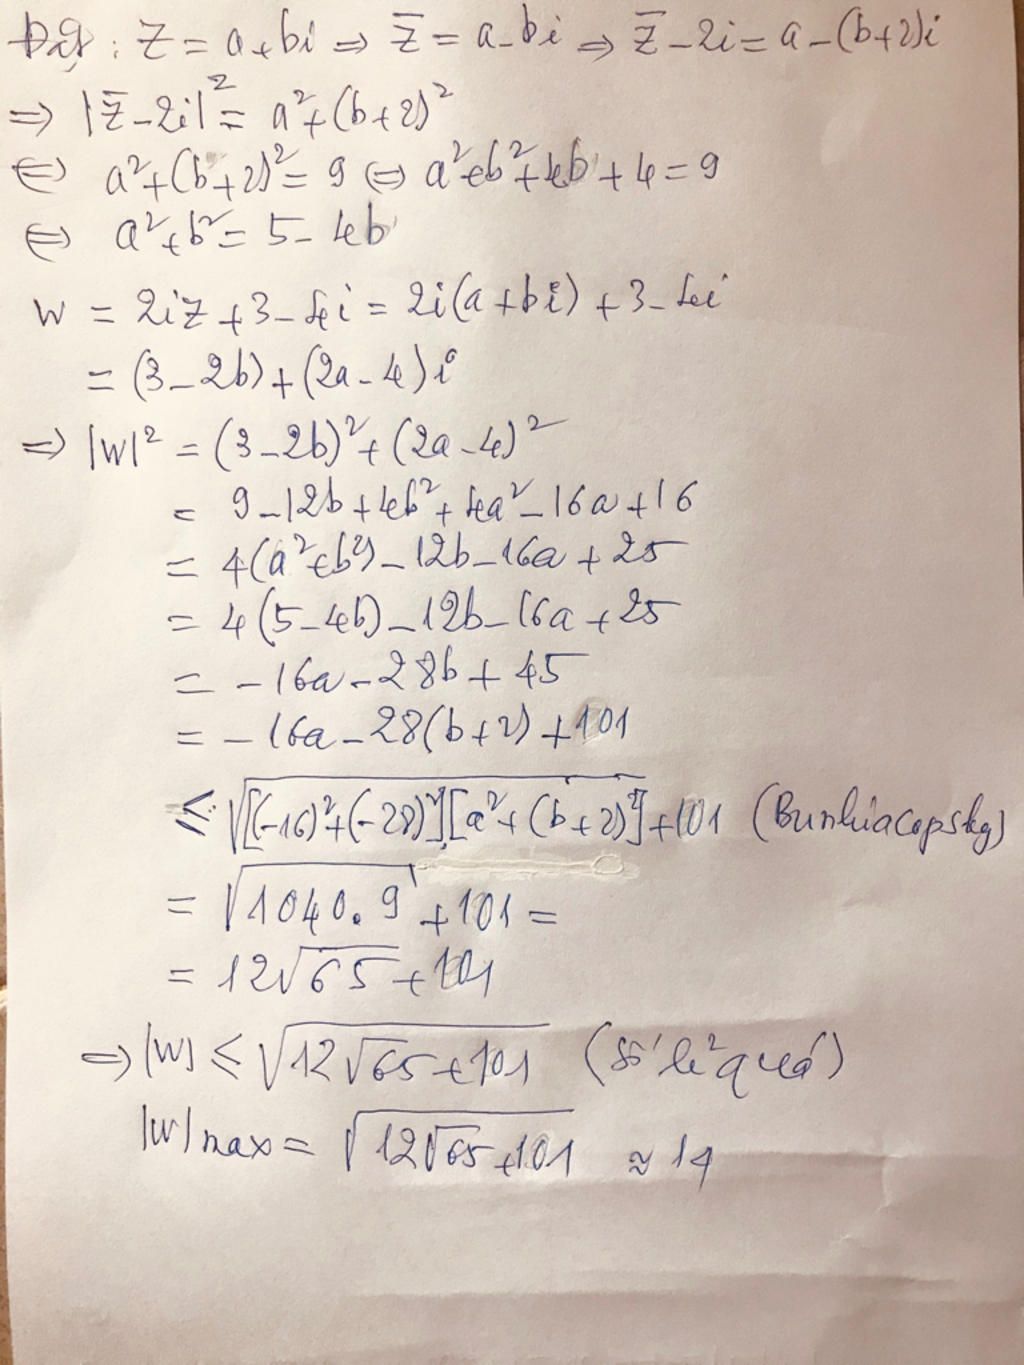 Đặt : z = a + bi ⇒ z̄ = a - bi ⇒ z̄ - 2i = a - (b+2)i
⇒ |z̄ - 2i|² = a² + (b+2)²
⇔ a² + (b+2)² = 9 ⇔ a² + b² + 4b + 4 = 9
⇔ a² + b² = 5 - 4b
w = 2iz + 3 - 4i = 2i(a + bi) + 3 - 4i
= (3 - 2b) + (2a - 4)i
⇒ |w|² = (3 - 2b)² + (2a - 4)²
= 9 - 12b + 4b² + 4a² - 16a + 16
= 4(a² + b²) - 12b - 16a + 25
= 4(5 - 4b) - 12b - 16a + 25
= - 16a - 28b + 45
= - 16a - 28(b+2) + 101
≤ √[(-16)² + (-28)²][a² + (b+2)²] + 101 (Bunhiacopsky)
= √1040.9 + 101 =
= 12√65 + 101
⇒ |w| ≤ √(12√65 + 101) (số lẻ quá)
|w| max = √(12√65 + 101) ≈ 14